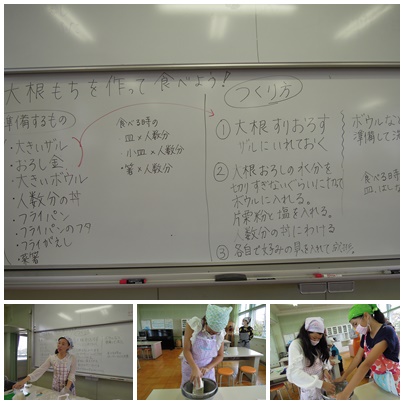 大根もちを作って食べよう!
準備するもの
・大きいザル
・おろし金
・大きいボウル
・人数分の丼
・フライパン
・フライパンのフタ
・フライがえし
・菜箸
食べる時の
皿×人数分
・小皿×人数分
・箸×人数分
つくり方
① 大根すりおろす
ザルにいれておく
② 大根おろしの水分を
切りすぎないぐらいに
ボウルに入れる。
片栗粉と塩を入れる。
人数分の丼にわける
③ 各自で好みの具を入れて
ボウルなど
準備して
食べる時
皿、はし